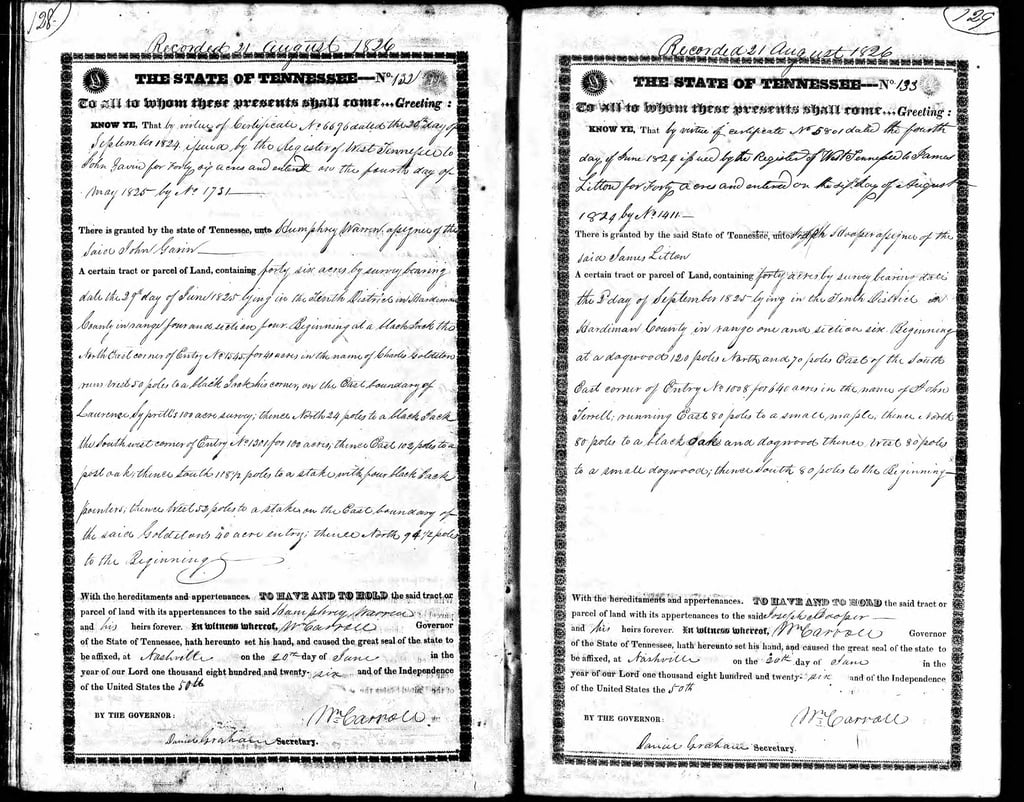 128
Recorded 21 August 1826
THE STATE OF TENNESSEE—No. 132
To all to whom these presents shall come...Greeting:
KNOW YE, That by virtue of Certificate No 6696 dated the day of
September 1824 issued by the Register of West Tennessee to
John Gavin for Forty six acres and entered on the fourth day of
May 1825 by No 1731
There is granted by the state of Tennessee, unto Humphrey Warren assignee of the
said John Gavin
A certain tract or parcel of Land, containing forty six acres by survey bearing
date the 29th day of June 1825 lying in the Tenth District in Hardiman
County in range four and section four. Beginning at a black Jack the
North East corner of Entry No 1545 for 40 acres in the name of Charles Goldston
runs West 50 poles to a black Jack his corner, on the East boundary of
Laurence 100 acre survey; thence North 24 poles to a black Jack
the South west corner of Entry No 1301 for 100 acres; thence East 102 poles to a
post oak; thence South 118½ poles to a stake with four black Jack
pointers; thence West 52 poles to a stake on the East boundary of
the said Goldston's 40 acre entry; thence North 94½ poles
to the Beginning
With the hereditaments and appertenances. TO HAVE AND TO HOLD the said tract or
parcel of land with its appertenances to the said Humphrey Warren
and his heirs forever. In witness whereof, Wm Carroll Governor
of the State of Tennessee, hath hereunto set his hand, and caused the great seal of the state to
be affixed, at Nashville on the 20th day of June in the
year of our Lord one thousand eight hundred and twenty-six and of the Independence
of the United States the 50th
BY THE GOVERNOR: Wm Carroll
Daniel Graham Secretary.
129
Recorded 21 August 1826
THE STATE OF TENNESSEE—No. 133
To all to whom these presents shall come...Greeting:
KNOW YE, That by virtue of certificate No 5801 dated the fourth
day of June 1824 issued by the Register of West Tennessee to James
Litton for Forty acres and entered on the day of August
1824 by No 1411
There is granted by the said State of Tennessee, unto Joseph Hooper assignee of the
said James Litton
A certain tract or parcel of Land, containing forty acres by survey bearing date
the day of September 1825 lying in the Tenth District in
Hardiman County in range one and section six. Beginning
at a dogwood 120 poles North and 70 poles East of the South
East corner of Entry No 1008 for 640 acres in the name of John
Terrell; running East 80 poles to a small maple, thence North
80 poles to a black oak and dogwood thence West 80 poles
to a small dogwood; thence South 80 poles to the Beginning
With the hereditaments and appertenances. TO HAVE AND TO HOLD the said tract or
parcel of land with its appertenances to the said Joseph Hooper
and his heirs forever. In witness whereof, Wm Carroll Governor
of the State of Tennessee, hath hereunto set his hand, and caused the great seal of the state to
be affixed, at Nashville on the 20th day of June in the
year of our Lord one thousand eight hundred and twenty-six and of the Independence
of the United States the 50th
BY THE GOVERNOR: Wm Carroll
Daniel Graham Secretary.